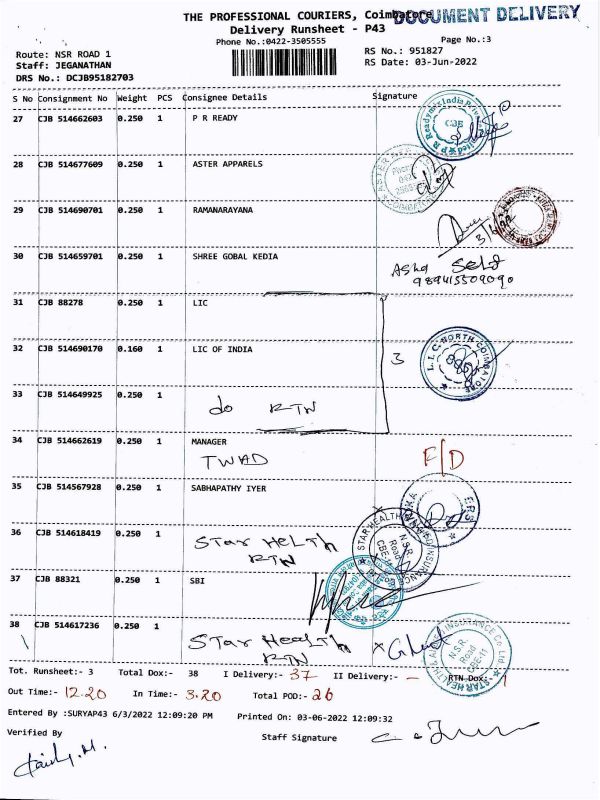 THE PROFESSIONAL COURIERS, Coimbatore
DOCUMENT DELIVERY
Delivery Runsheet - P43
Phone No.:0422-3505555
Page No.:3
Route: NSR ROAD 1
RS No.: 951827
Staff: JEGANATHAN
RS Date: 03-Jun-2022
DRS No.: DCJB95182703
S No Consignment No Weight PCS Consignee Details Signature
27 CJB 514662603 0.250 1 P R READY
28 CJB 514677609 0.250 1 ASTER APPARELS
29 CJB 514690701 0.250 1 RAMANARAYANA
30 CJB 514659701 0.250 1 SHREE GOBAL KEDIA
Asha Self
31 CJB 88278 0.250 1 LIC
32 CJB 514690170 0.160 1 LIC OF INDIA 3
L.I.C. NORTH COIMBATORE
33 CJB 514649925 0.250 1
do RTN
34 CJB 514662619 0.250 1 MANAGER
TWAD F/D
35 CJB 514567928 0.250 1 SABHAPATHY IYER
36 CJB 514618419 0.250 1 Star Helth
RTN
37 CJB 88321 0.250 1 SBI
38 CJB 514617236 0.250 1
Star Health
RTN
N.S.R. Road CBE-11
Tot. Runsheet:- 3 Total Dox:- 38 I Delivery:- 37 II Delivery:- - RTN Dox:- 1
Out Time:- 12.20 In Time:- 3.20 Total POD:- 26
Entered By :SURYAP43 6/3/2022 12:09:20 PM Printed On: 03-06-2022 12:09:32
Verified By Staff Signature